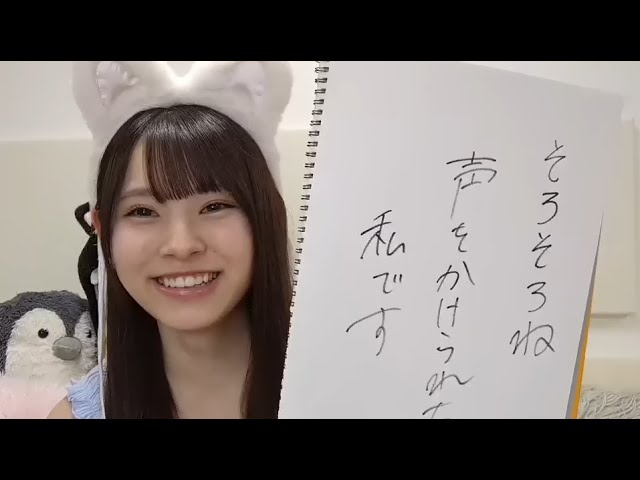 そろそろね
声をかけられ
私です